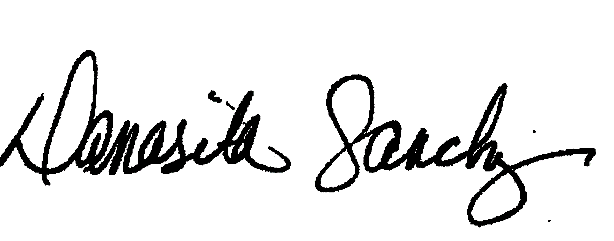 Danasita Sanchz